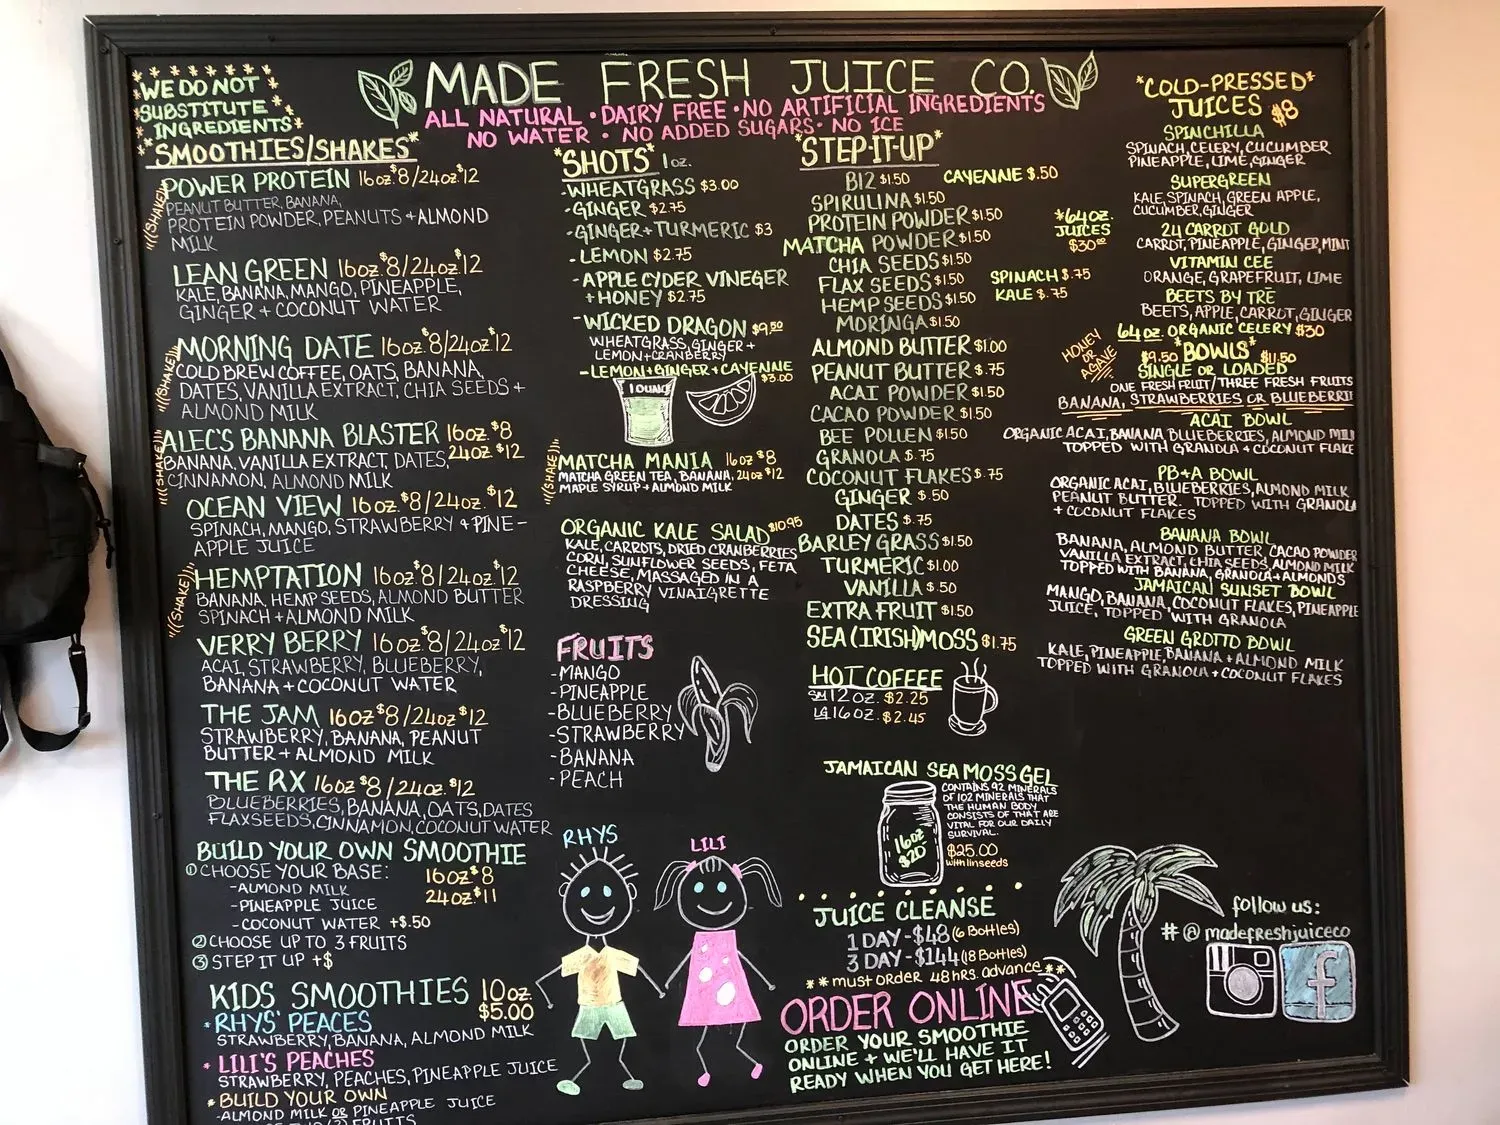 WE DO NOT
SUBSTITUTE
INGREDIENTS
MADE FRESH JUICE CO.
ALL NATURAL • DAIRY FREE • NO ARTIFICIAL INGREDIENTS
NO WATER • NO ADDED SUGARS • NO ICE
"SMOOTHIES/SHAKES"
(SHAKE) POWER PROTEIN 16oz. $8/24oz. $12
PEANUT BUTTER, BANANA,
PROTEIN POWDER, PEANUTS + ALMOND
MILK
LEAN GREEN 16oz. $8/24oz. $12
KALE, BANANA, MANGO, PINEAPPLE,
GINGER + COCONUT WATER
(SHAKE) MORNING DATE 16oz. $8/24oz. $12
COLD BREW COFFEE, OATS, BANANA,
DATES, VANILLA EXTRACT, CHIA SEEDS +
ALMOND MILK
(SHAKE) ALEC'S BANANA BLASTER 16oz. $8
24oz $12
BANANA, VANILLA EXTRACT, DATES,
CINNAMON, ALMOND MILK
OCEAN VIEW 16oz. $8/24oz. $12
SPINACH, MANGO, STRAWBERRY + PINE-
APPLE JUICE
(SHAKE) HEMPTATION 16oz $8/24oz. $12
BANANA, HEMP SEEDS, ALMOND BUTTER
SPINACH + ALMOND MILK
VERRY BERRY 16oz $8/24oz $12
ACAI, STRAWBERRY, BLUEBERRY,
BANANA + COCONUT WATER
THE JAM 16oz $8/24oz $12
STRAWBERRY, BANANA, PEANUT
BUTTER + ALMOND MILK
THE RX 16oz $8/24oz. $12
BLUEBERRIES, BANANA, OATS, DATES
FLAXSEEDS, CINNAMON, COCONUT WATER
BUILD YOUR OWN SMOOTHIE
① CHOOSE YOUR BASE: 16oz. $8
24oz. $11
-ALMOND MILK
-PINEAPPLE JUICE
-COCONUT WATER +$.50
② CHOOSE UP TO 3 FRUITS
③ STEP IT UP +$
KIDS SMOOTHIES 10oz.
$5.00
*RHYS' PEACES
STRAWBERRY, BANANA, ALMOND MILK
*LILI'S PEACHES
STRAWBERRY, PEACHES, PINEAPPLE JUICE
*BUILD YOUR OWN
-ALMOND MILK OR PINEAPPLE JUICE
FRUITS
"SHOTS" 1oz.
-WHEATGRASS $3.00
-GINGER $2.75
-GINGER+TURMERIC $3
-LEMON $2.75
-APPLE CYDER VINEGER
+ HONEY $2.75
-WICKED DRAGON $9.50
WHEATGRASS, GINGER +
LEMON+CRANBERRY
-LEMON+GINGER+CAYENNE
$3.00
1 OUNCE
(SHAKE) MATCHA MANIA 16oz $8
MATCHA GREEN TEA, BANANA, 24oz $12
MAPLE SYRUP + ALMOND MILK
ORGANIC KALE SALAD $10.95
KALE, CARROTS, DRIED CRANBERRIES
CORN, SUNFLOWER SEEDS, FETA
CHEESE, MASSAGED IN A
RASPBERRY VINAIGRETTE
DRESSING
FRUITS
-MANGO
-PINEAPPLE
-BLUEBERRY
-STRAWBERRY
-BANANA
-PEACH
RHYS
LILI
"STEP-IT-UP"
B12 $1.50 CAYENNE $.50
SPIRULINA $1.50
PROTEIN POWDER $1.50
MATCHA POWDER $1.50
CHIA SEEDS $1.50
FLAX SEEDS $1.50
HEMP SEEDS $1.50
MORINGA $1.50
ALMOND BUTTER $1.00
PEANUT BUTTER $.75
ACAI POWDER $1.50
CACAO POWDER $1.50
BEE POLLEN $1.50
GRANOLA $.75
COCONUT FLAKES $.75
GINGER $.50
DATES $.75
BARLEY GRASS $1.50
TURMERIC $1.00
VANILLA $.50
EXTRA FRUIT $1.50
SEA (IRISH) MOSS $1.75
*64oz.
JUICES
$30.00
SPINACH $.75
KALE $.75
HOT COFFEE
SM 12oz. $2.25
LG 16oz. $2.45
JAMAICAN SEA MOSS GEL
16oz
$20
CONTAINS 92 MINERALS
OF 102 MINERALS THAT
THE HUMAN BODY
CONSISTS OF THAT ARE
VITAL FOR OUR DAILY
SURVIVAL.
$25.00
with linseeds
JUICE CLEANSE
1 DAY-$48 (6 Bottles)
3 DAY-$144 (18 Bottles)
**must order 48 hrs. advance**
ORDER ONLINE
ORDER YOUR SMOOTHIE
ONLINE + WE'LL HAVE IT
READY WHEN YOU GET HERE!
"COLD-PRESSED"
JUICES $8
SPINCHILLA
SPINACH, CELERY, CUCUMBER
PINEAPPLE, LIME, GINGER
SUPERGREEN
KALE, SPINACH, GREEN APPLE,
CUCUMBER, GINGER
24 CARROT GOLD
CARROT, PINEAPPLE, GINGER, MINT
VITAMIN CEE
ORANGE, GRAPEFRUIT, LIME
BEETS BY TRĒ
BEETS, APPLE, CARROT, GINGER
64oz. ORGANIC CELERY $30
HONEY
OR
AGAVE
$9.50 "BOWLS" $11.50
SINGLE OR LOADED
ONE FRESH FRUIT/THREE FRESH FRUITS
BANANA, STRAWBERRIES OR BLUEBERRIE
ACAI BOWL
ORGANIC ACAI, BANANA, BLUEBERRIES, ALMOND MIL
TOPPED WITH GRANOLA + COCONUT FLAKE
PB+A BOWL
ORGANIC ACAI, BLUEBERRIES, ALMOND MILK
PEANUT BUTTER. TOPPED WITH GRANOLA
+ COCONUT FLAKES
BANANA BOWL
BANANA, ALMOND BUTTER, CACAO POWDER
VANILLA EXTRACT, CHIA SEEDS, ALMOND MILK
TOPPED WITH BANANA, GRANOLA + ALMONDS
JAMAICAN SUNSET BOWL
MANGO, BANANA, COCONUT FLAKES, PINEAPPLE
JUICE, TOPPED WITH GRANOLA
GREEN GROTTO BOWL
KALE, PINEAPPLE, BANANA + ALMOND MILK
TOPPED WITH GRANOLA + COCONUT FLAKES
follow us:
# @madefreshjuiceco
f